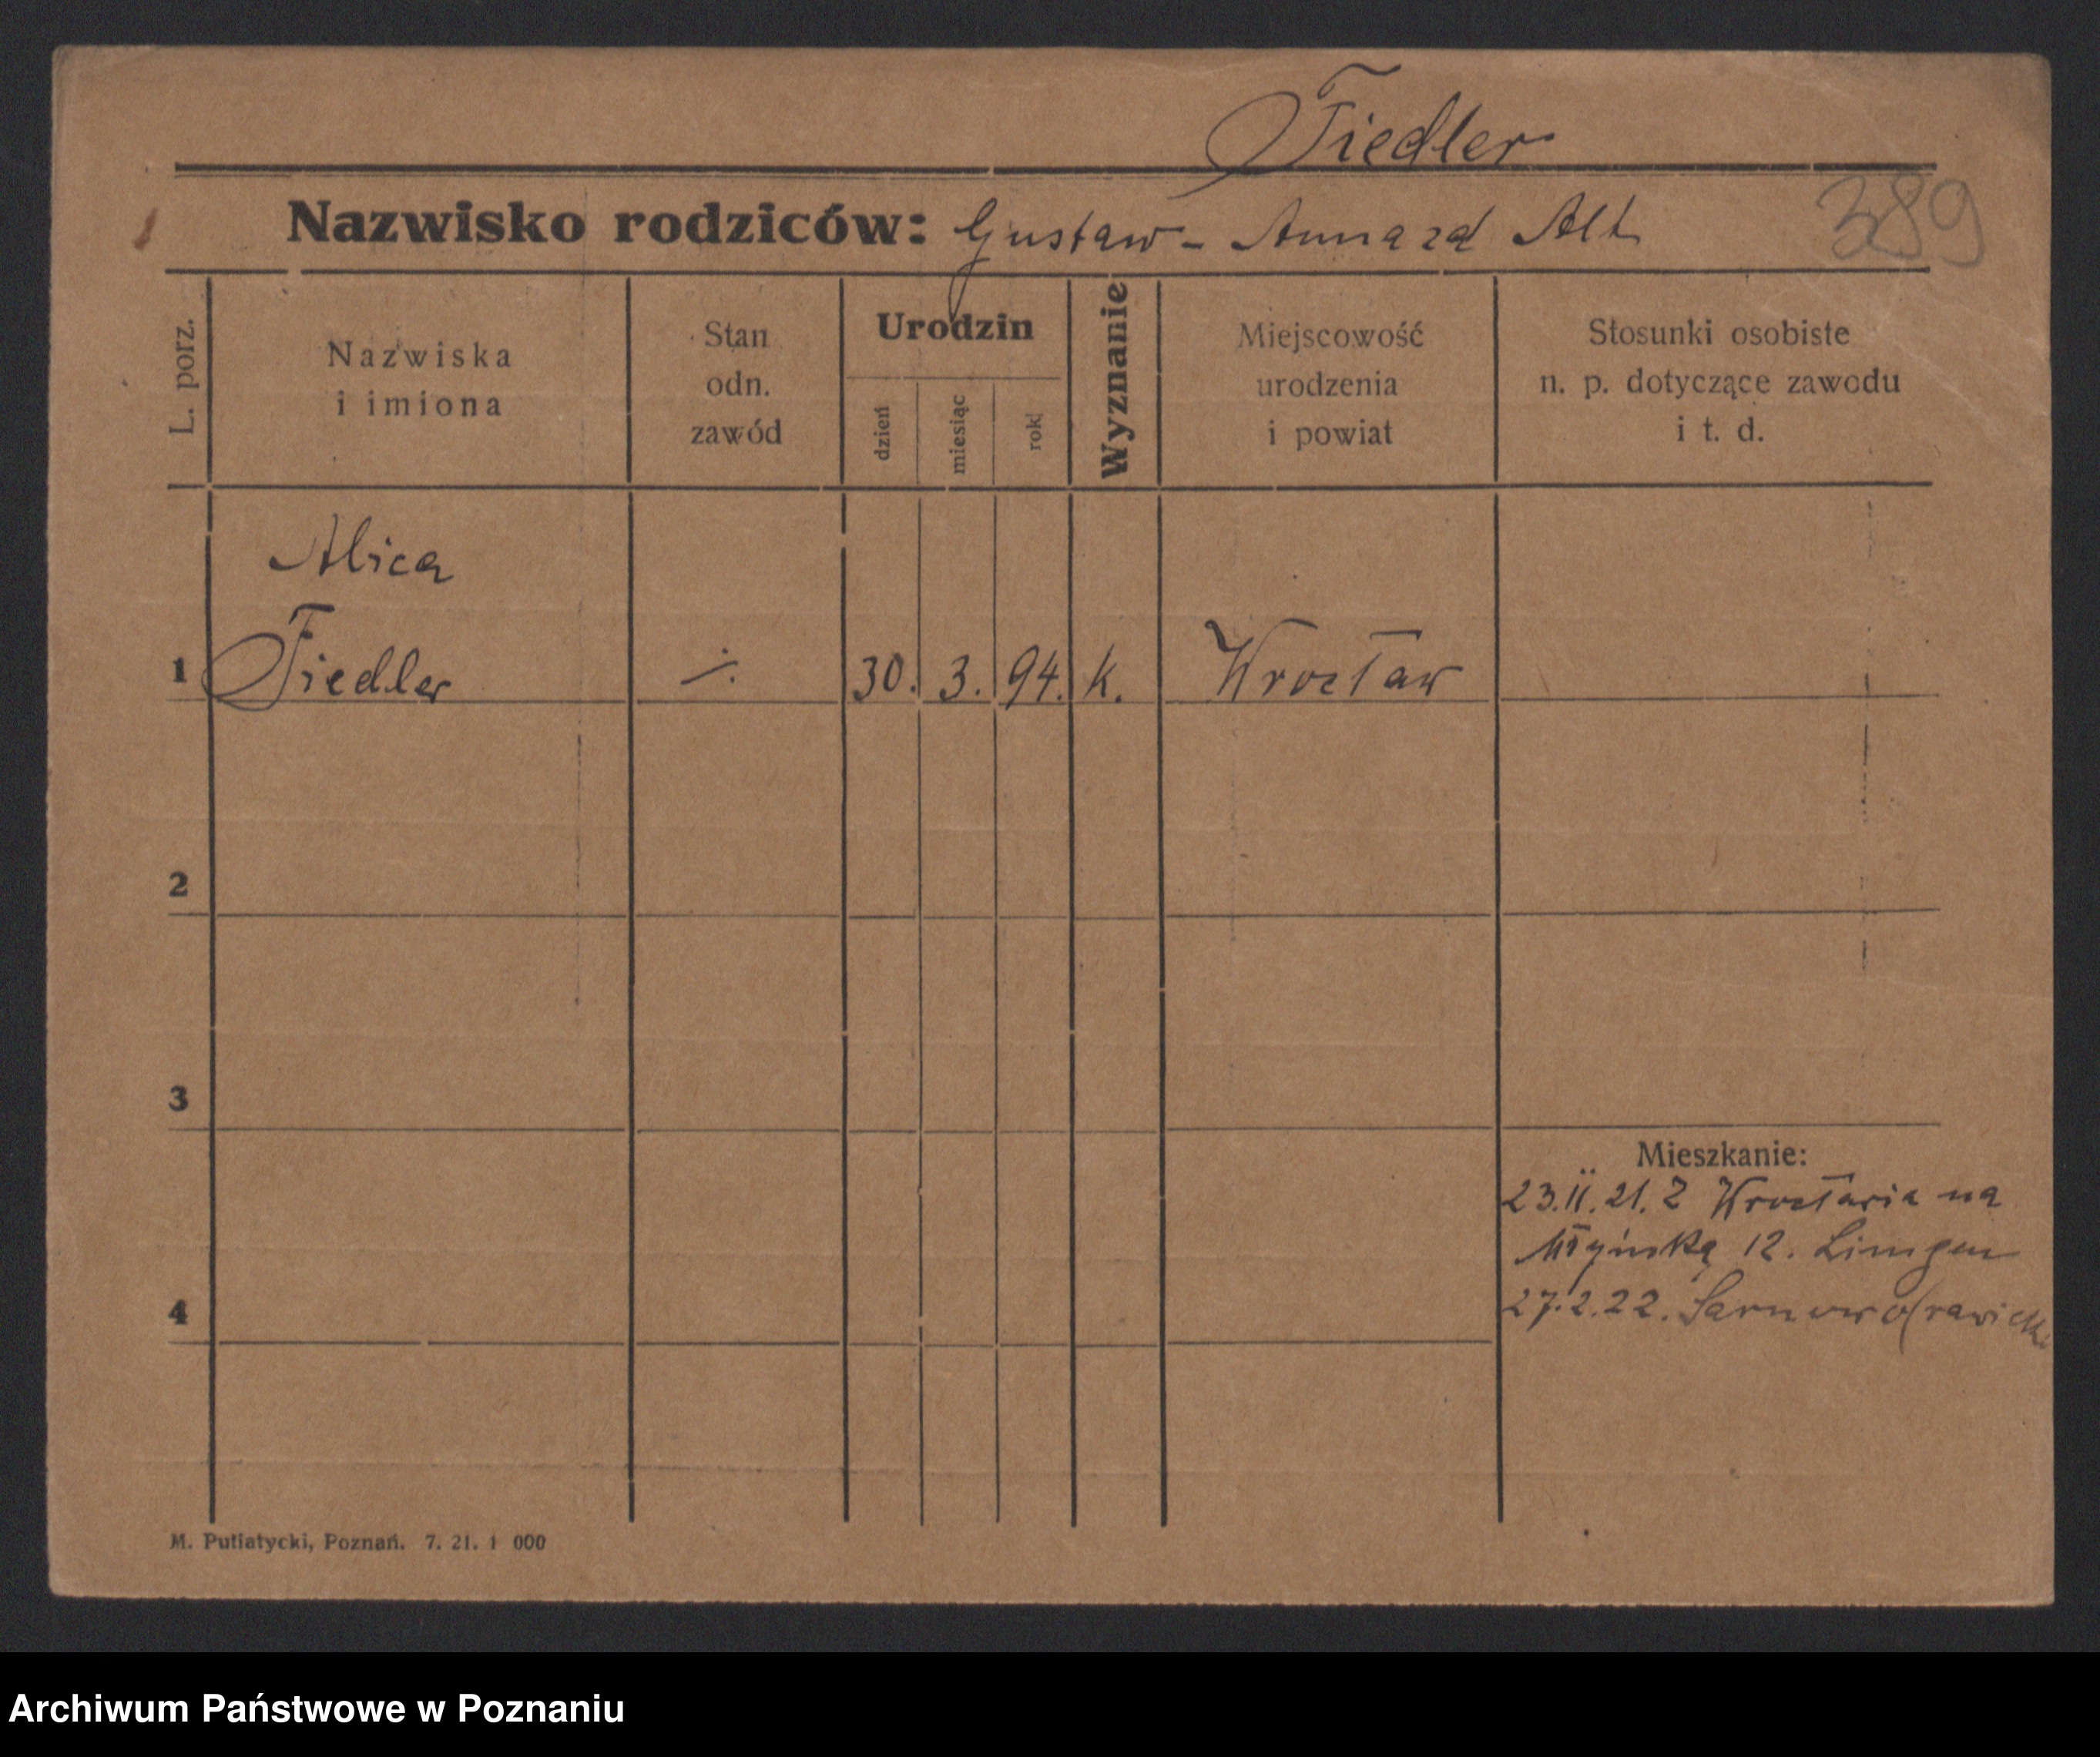 Fiedler
389
Nazwisko rodziców: Gustaw - Anna zd Alt
L. porz.
Nazwiska
i imiona
Stan
odn.
zawód
Urodzin
dzień
miesiąc
rok
Wyznanie
Miejscowość
urodzenia
i powiat
Stosunki osobiste
n. p. dotyczące zawodu
i t. d.
Alica
1 Fiedler ./. 30. 3. 94. k. Wrocław
2
3
Mieszkanie:
23.II.21. Z Wrocławia na
Młyńską 12. Limgen
4
27.2.22. Sarnowo (rawick
M. Putiatycki, Poznań. 7. 21. 1 000
Archiwum Państwowe w Poznaniu